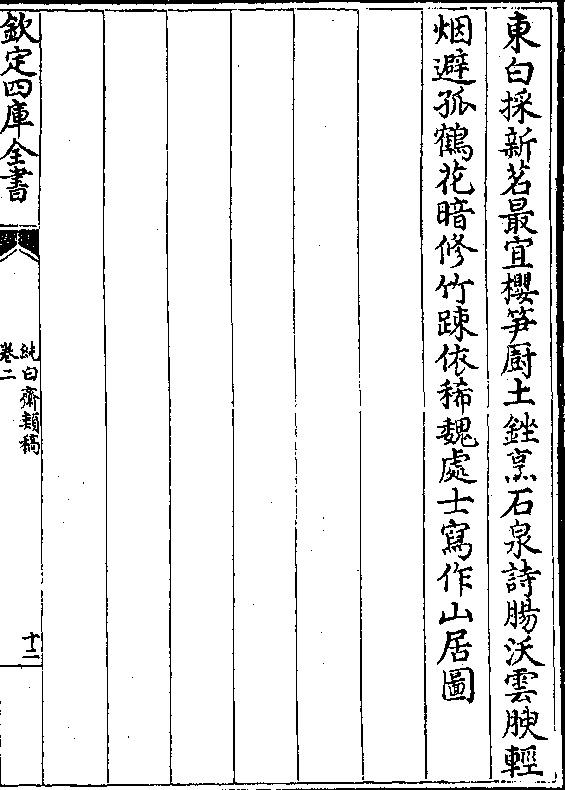 東白採新茗最宜櫻笋厨土銼烹石泉詩腸沃雲腴輕
烟避孤鶴花暗修竹踈依稀魏處士寫作山居圖
欽定四庫全書
純白齋類稿
卷二
十二